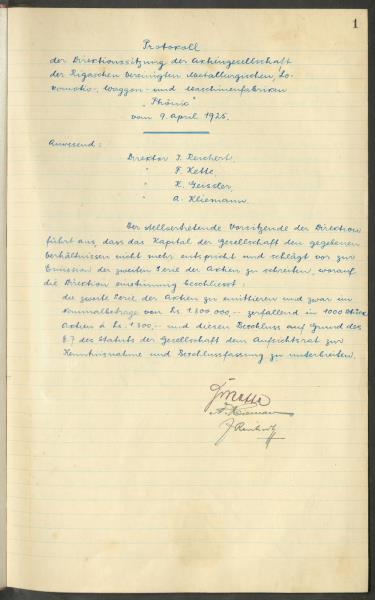 1
Protokoll
der Direktionssitzung der Aktiengesellschaft
der Rigaschen Vereinigten Metallurgischen, Lo-
komotiv-, Waggon- und Maschinenfabriken
"Phönix"
vom 9. April 1925.
Anwesend:
Direktor J. Reichert,
" F. Kette,
" K. Geissler,
" A. Kliemann.
Der stellvertretende Vorsitzende der Direktion
führt aus, dass das Kapital der Gesellschaft den gegebenen
Verhältnissen nicht mehr entspricht und schlägt vor zur
Emission der zweiten Serie der Aktien zu schreiten, worauf
die Direktion einstimmig beschliesst:
die zweite Serie der Aktien zu emittieren und zwar im
Nominalbetrage von Ls. 1.800.000,-- zerfallend in 1000 Stück
Aktien à Ls. 1800,-- und diesen Beschluss auf Grund des
§ 7 des Statuts der Gesellschaft dem Aufsichtsrat zur
Kenntnisnahme und Beschlussfassung zu unterbreiten.